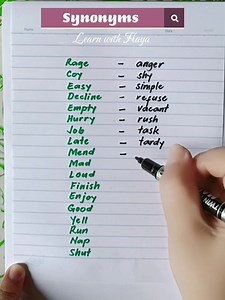 Synonyms
Learn with Haya
Rage - anger
Coy - shy
Easy - simple
Decline - refuse
Empty - vacant
Hurry - rush
Job - task
Late - tardy
Mend -
Mad
Loud
Finish
Enjoy
Good
Yell
Run
Nap
Shut